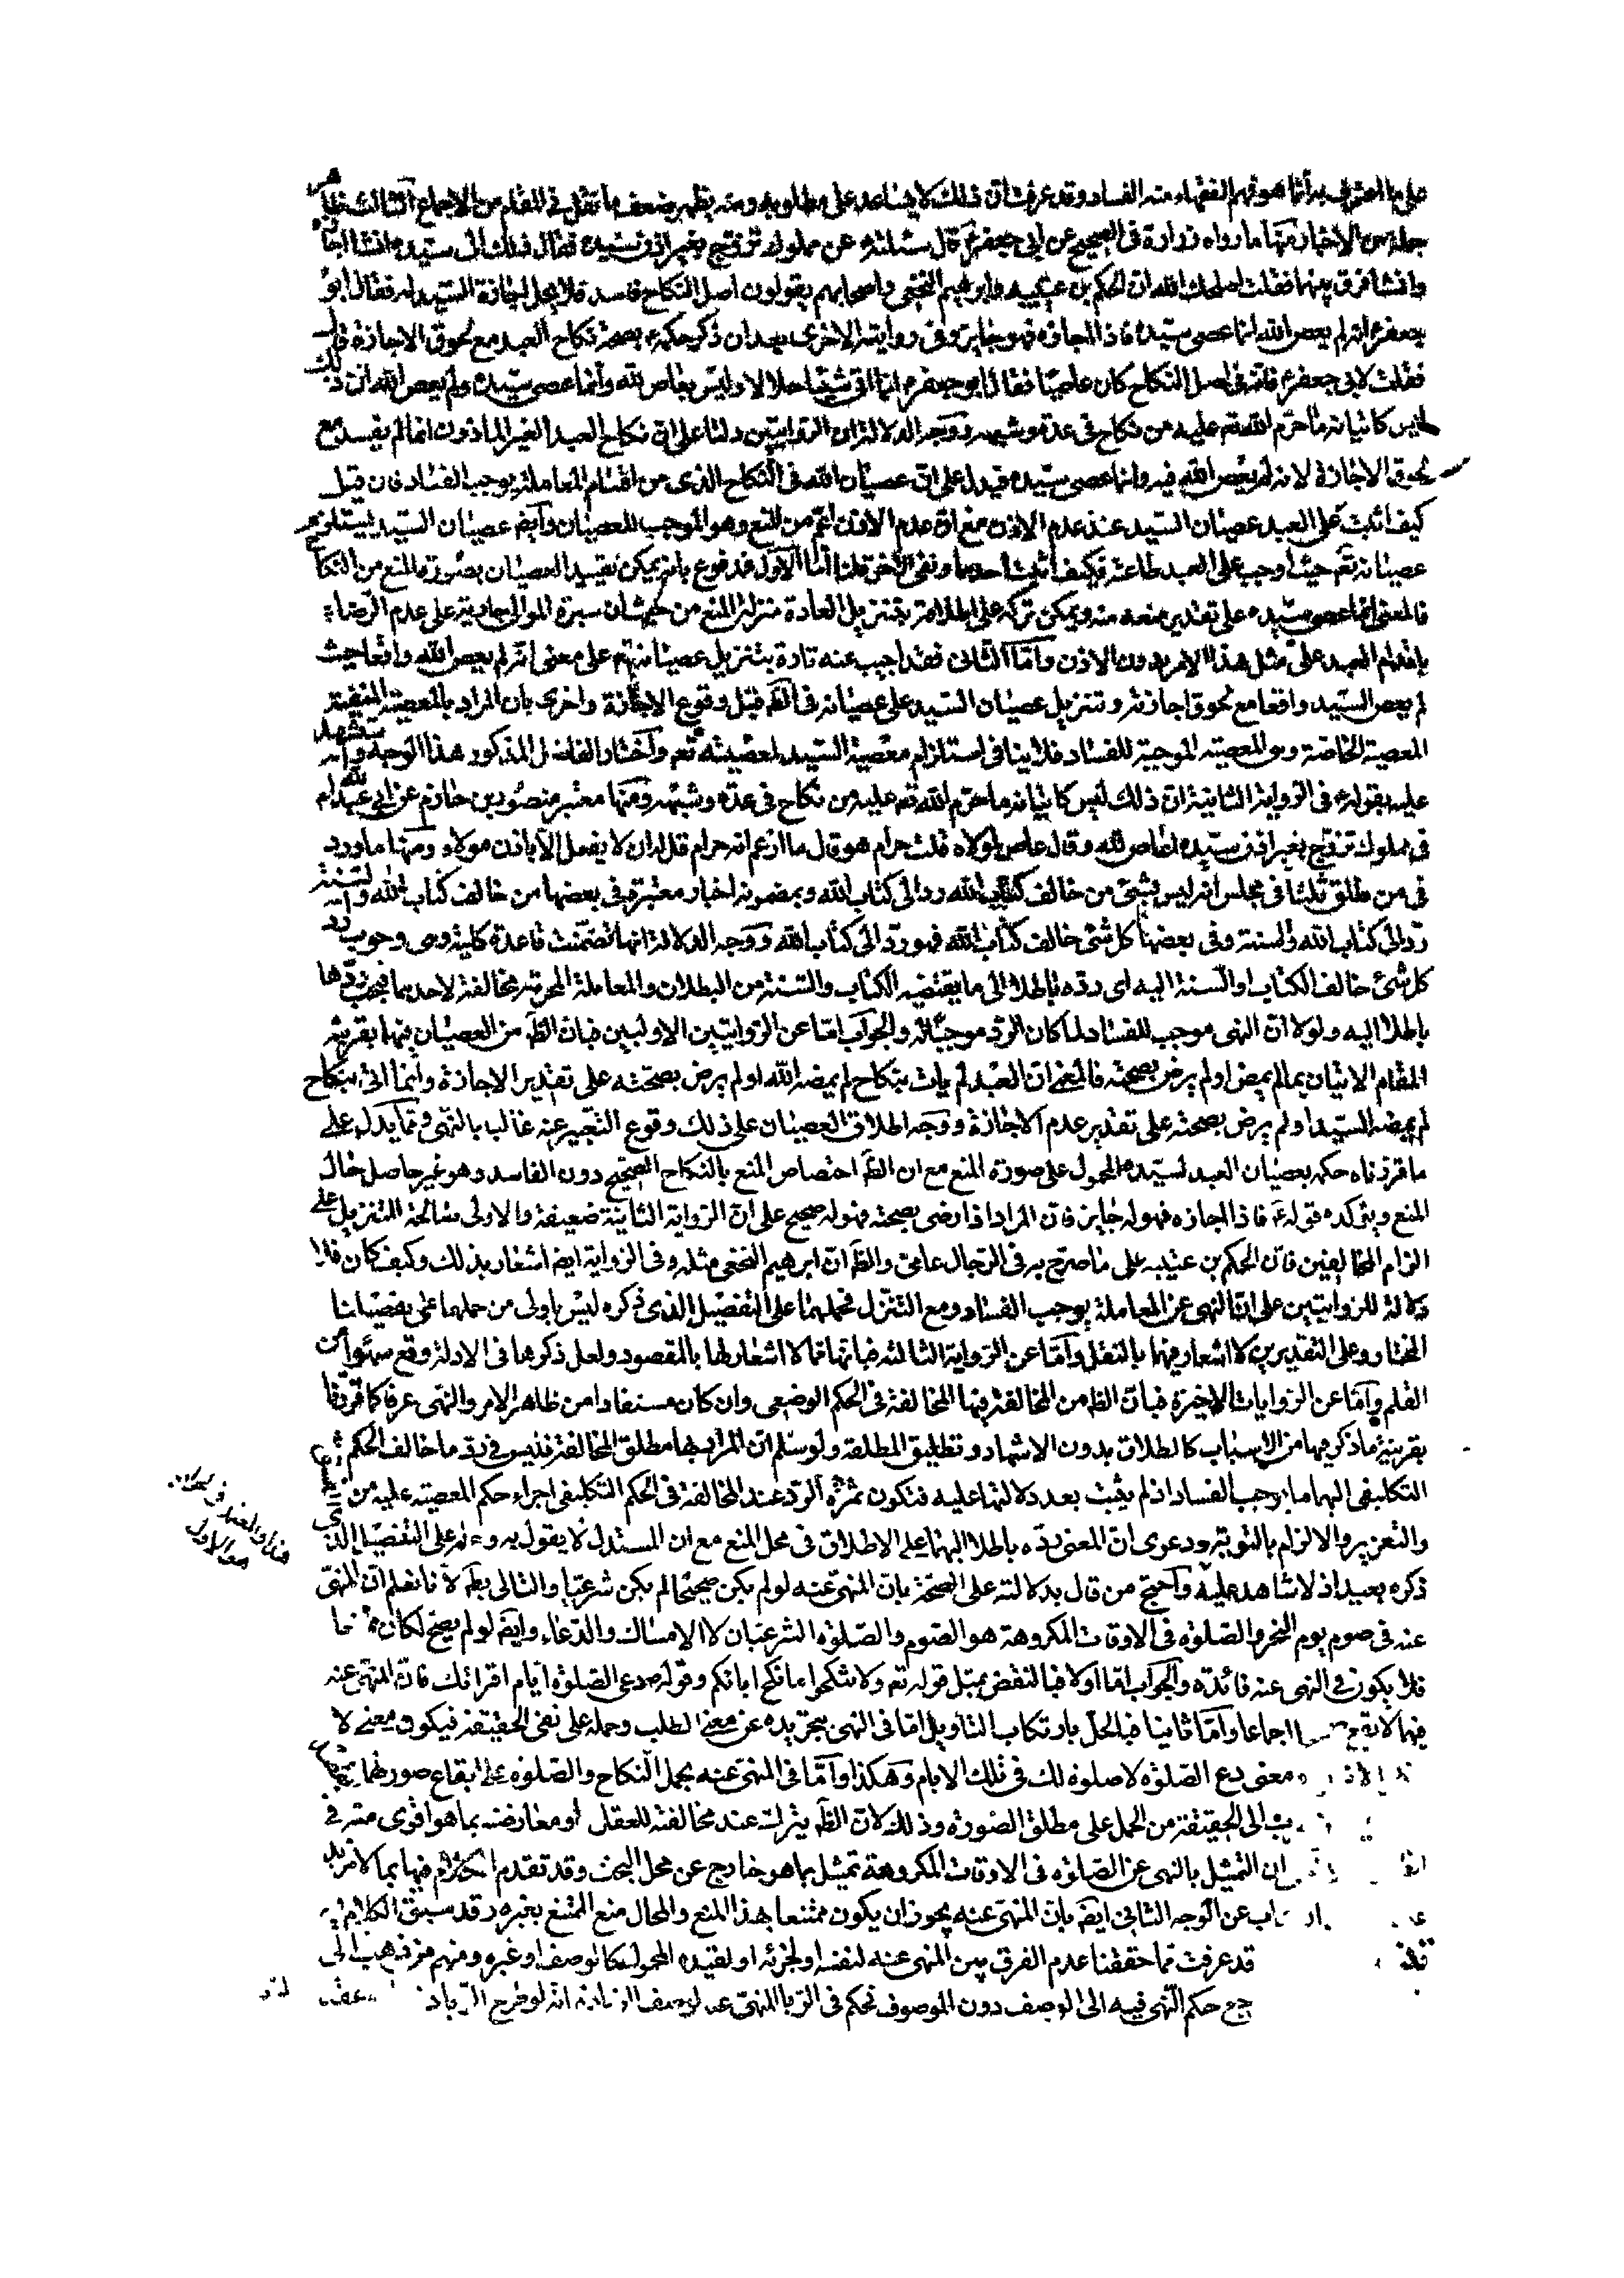 على ما اعترف به أنما هو فهم الفقهاء منه الفساد وقد عرفت ان ذلك لا يساعد على مطلوبه ومنه يظهر ضعف ما نقل في المقام من الاجماع الثالث ظاهر
جملة من الاخبار منها ما رواه زرارة فى الصحيح عن ابى جعفر ع قال سئلته عن مملوك تزوج بغير اذن سيده فقال ذلك الى سيده انشا اجازه
وانشا فرق بينهما فقلت اصلحك الله ان الحكم بن عتيبه وابراهيم النخعى واصحابهم يقولون اصل النكاح فاسد فلا يحل اجازة السيد له فقال ابو
جعفر ع انه لم يعص الله انما عصى سيده فاذا اجازه فهو جايز وفى روايته الاخرى بعد ان ذكر حكمه ع بصحة نكاح العبد مع لحوق الاجازة قال
فقلت لابى جعفر ع فانه فى اصل النكاح كان عاصيا فقال ابو جعفر ع انما اتى شيئا حلالا وليس بعاص لله وانما عصى سيده ولم يعص الله ان ذلك
ليس كاتيانه ما حرم الله تع عليه من نكاح فى عدة وشبهه ووجه الدلالة ان الروايتين دلتا على ان نكاح العبد الغير الماذون انما لم يفسد مع
لحوق الاجازة لانه لم يعص الله فيه وانما عصى سيده فيدل على ان عصيان الله فى النكاح الذى من اقسام المعاملة يوجب الفساد فان قيل
كيف اثبت على العبد عصيان السيد عند عدم الاذن مع ان عدم الاذن اعم من المنع وهو الموجب للعصيان وايض عصيان السيد يستلزم
عصيانه تع حيث اوجب على العبد طاعته فكيف اثبت احدهما ونفى الاخر قلنا اما الاول فمدفوع بانه يمكن تقييد العصيان بصورة المنع من النكاح
فالمعنى انما عصى سيده على تقدير منعه منه ويمكن تركه على اطلاقه بتنزيل العادة منزلة المنع من حيث ان سيرة الموالى جارية على عدم الرضاء
باقدام العبد على مثل هذا الامر بدون الاذن واما الثانى فقد اجيب عنه تارة بتنزيل عصيانه تع على معنى انه لم يعص الله واقعا حيث
لم يعص السيد واقعا مع لحوق اجازته وتنزيل عصيان السيد على عصيانه فى الظ قبل وقوع الاجازة واخرى بان المراد بالمعصية المنفية
المعصية الخاصة وهى المعصية الموجبة للفساد فلا ينافى استلزام معصية السيد لمعصيته تع واختار الفاضل المذكور هذا الوجه واستشهد
عليه بقوله ع فى الرواية الثانية ان ذلك ليس كاتيانه ما حرم الله تع عليه من نكاح فى عدة وشبهه ومنها معتبر منصور بن حازم عن ابى عبد الله ع
فى مملوك تزوج بغير اذن سيده اعاص لله وقال عاص لمولاه قلت حرام هو قال ما ازعم انه حرام قل له ان لا يفعل الا باذن مولاه ومنها ما ورد
فى من طلق ثلثا فى مجلس انه ليس بشئ من خالف كتاب الله رد الى كتاب الله وبمضمونه اخبار معتبرة فى بعضها من خالف كتاب الله والسنة
رد الى كتاب الله والسنة وفى بعضها كل شئ خالف كتاب الله فهو رد الى كتاب الله ووجه الدلالة انها تضمنت قاعدة كلية وهى وجوب رد
كل شئ خالف الكتاب او السنة اليه اى رده باطلا الى ما يقتضيه الكتاب والسنة من البطلان والمعاملة المحرمة مخالفة لاحدهما فيجب ردها
باطلا اليه ولولا ان النهى موجب للفساد لما كان الرد موجبا له والجواب اما عن الروايتين الاوليين فبان الظ من العصيان فيهما بقرينة
المقام الاتيان بما لم يمض او لم يرض بصحته فالمعنى ان العبد لم يات بنكاح لم يمضه الله او لم يرض بصحته على تقدير الاجازة وانما اتى بنكاح
لم يمضه السيد او لم يرض بصحته على تقدير عدم الاجازة ووجه اطلاق العصيان على ذلك وقوع التعبير عنه غالبا بالنهى ومما يدل على
ما قررناه حكمه بعصيان العبد لسيده المحمول على صورة المنع مع ان الظ اختصاص المنع بالنكاح الصحيح دون الفاسد وهو غير حاصل حال
المنع ويؤكده قوله ع فاذا اجازه فهو له جايز فان المراد اذا رضى بصحته فهو له صحيح على ان الرواية الثانية ضعيفة والاولى صالحة للتنزيل على
الزام المخالفين فان الحكم بن عتيبه على ما صرح به فى الرجال عامى والظ ان ابرهيم النخعى مثله وفى الرواية ايض اشعار بذلك وكيف كان فلا
دلالة للروايتين على ان النهى عن المعاملة يوجب الفساد ومع التنزل فحملهما على التفصيل الذى ذكره ليس باولى من حملهما على تفصيلنا
المختار وعلى التقديرين لا اشعار فيهما بالنقل واما عن الرواية الثالثة فبانها مما لا اشعار لها بالمقصود ولعل ذكرها فى الادلة وقع سهوا من
القلم واما عن الروايات الاخيرة فبان الظ من المخالفة فيها المخالفة فى الحكم الوضعى وان كان مستفادا من ظاهر الامر والنهى عرفا كما قررنا
بقرينة ما ذكر فيها من الاسباب كالطلاق بدون الاشهاد وتطليق المطلقة ولو سلم ان المراد بها مطلق المخالفة فليس فى رد ما خالف الحكم
التكليفى اليهما ما يوجب الفساد اذ لم يثبت بعد دلالتهما عليه فتكون ثمرة الرد عند المخالفة فى الحكم التكليفى اجراء حكم المعصية عليه من
والتعزير والالزام بالتوبة ودعوى ان المعنى رده باطلا اليهما على الاطلاق فى محل المنع مع ان المستدل لا يقول به على التفصيل الذى
ذكره بعيد اذ لا شاهد عليه واحتج من قال بدلالته على الصحة بان المنهى عنه لو لم يكن صحيحا لم يكن شرعيا والتالى بط لانا نعلم ان المنهى
عنه فى صوم يوم النحر والصلوة فى الاوقات المكروهة هو الصوم والصلوة الشرعيان لا الامساك والدعاء وايض لو لم يصح لكان
فلا يكون فى النهى عنه فائدة والجواب اما اولا فبالنقض بمثل قوله تع ولا تنكحوا ما نكح اباؤكم وقوله ص دعى الصلوة ايام اقرائك فان المنهى عنه
فيها لا يقع اجماعا واما ثانيا فبالحل بارتكاب التاويل اما فى النهى بتجريده عن معنى الطلب وحمله على نفى الحقيقة فيكون معنى لا
معنى دع الصلوة لا صلوة لك فى تلك الايام وهكذا واما فى المنهى عنه بحمل النكاح والصلوة على ايقاع صورهما
الى الحقيقة من الحمل على مطلق الصورة وذلك لان الظ يترك عند مخالفته للعقل او معارضته بما هو اقوى منه فى
ان التمثيل بالنهى عن الصلوة فى الاوقات المكروهة تمثيل بما هو خارج عن محل البحث وقد تقدم الكلام فيها بما لا مزيد
عن الوجه الثانى ايض بان المنهى عنه يجوز ان يكون ممتنعا بهذا المنع والمحال منع الممتنع بغيره وقد سبق الكلام
قد عرفت مما حققنا عدم الفرق بين المنهى عنه لنفسه او لجزئه او لقيده المحمول كالوصف او غيره ومنهم من ذهب الى
حكم النهى فيه الى الوصف دون الموصوف فحكم فى الربا المنهى عنه لوصف الزيادة انه لو طرح